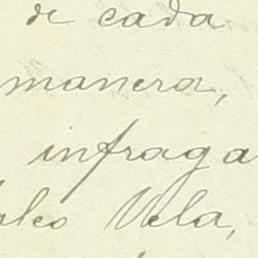 de cada
manera,
infraga
Vela,